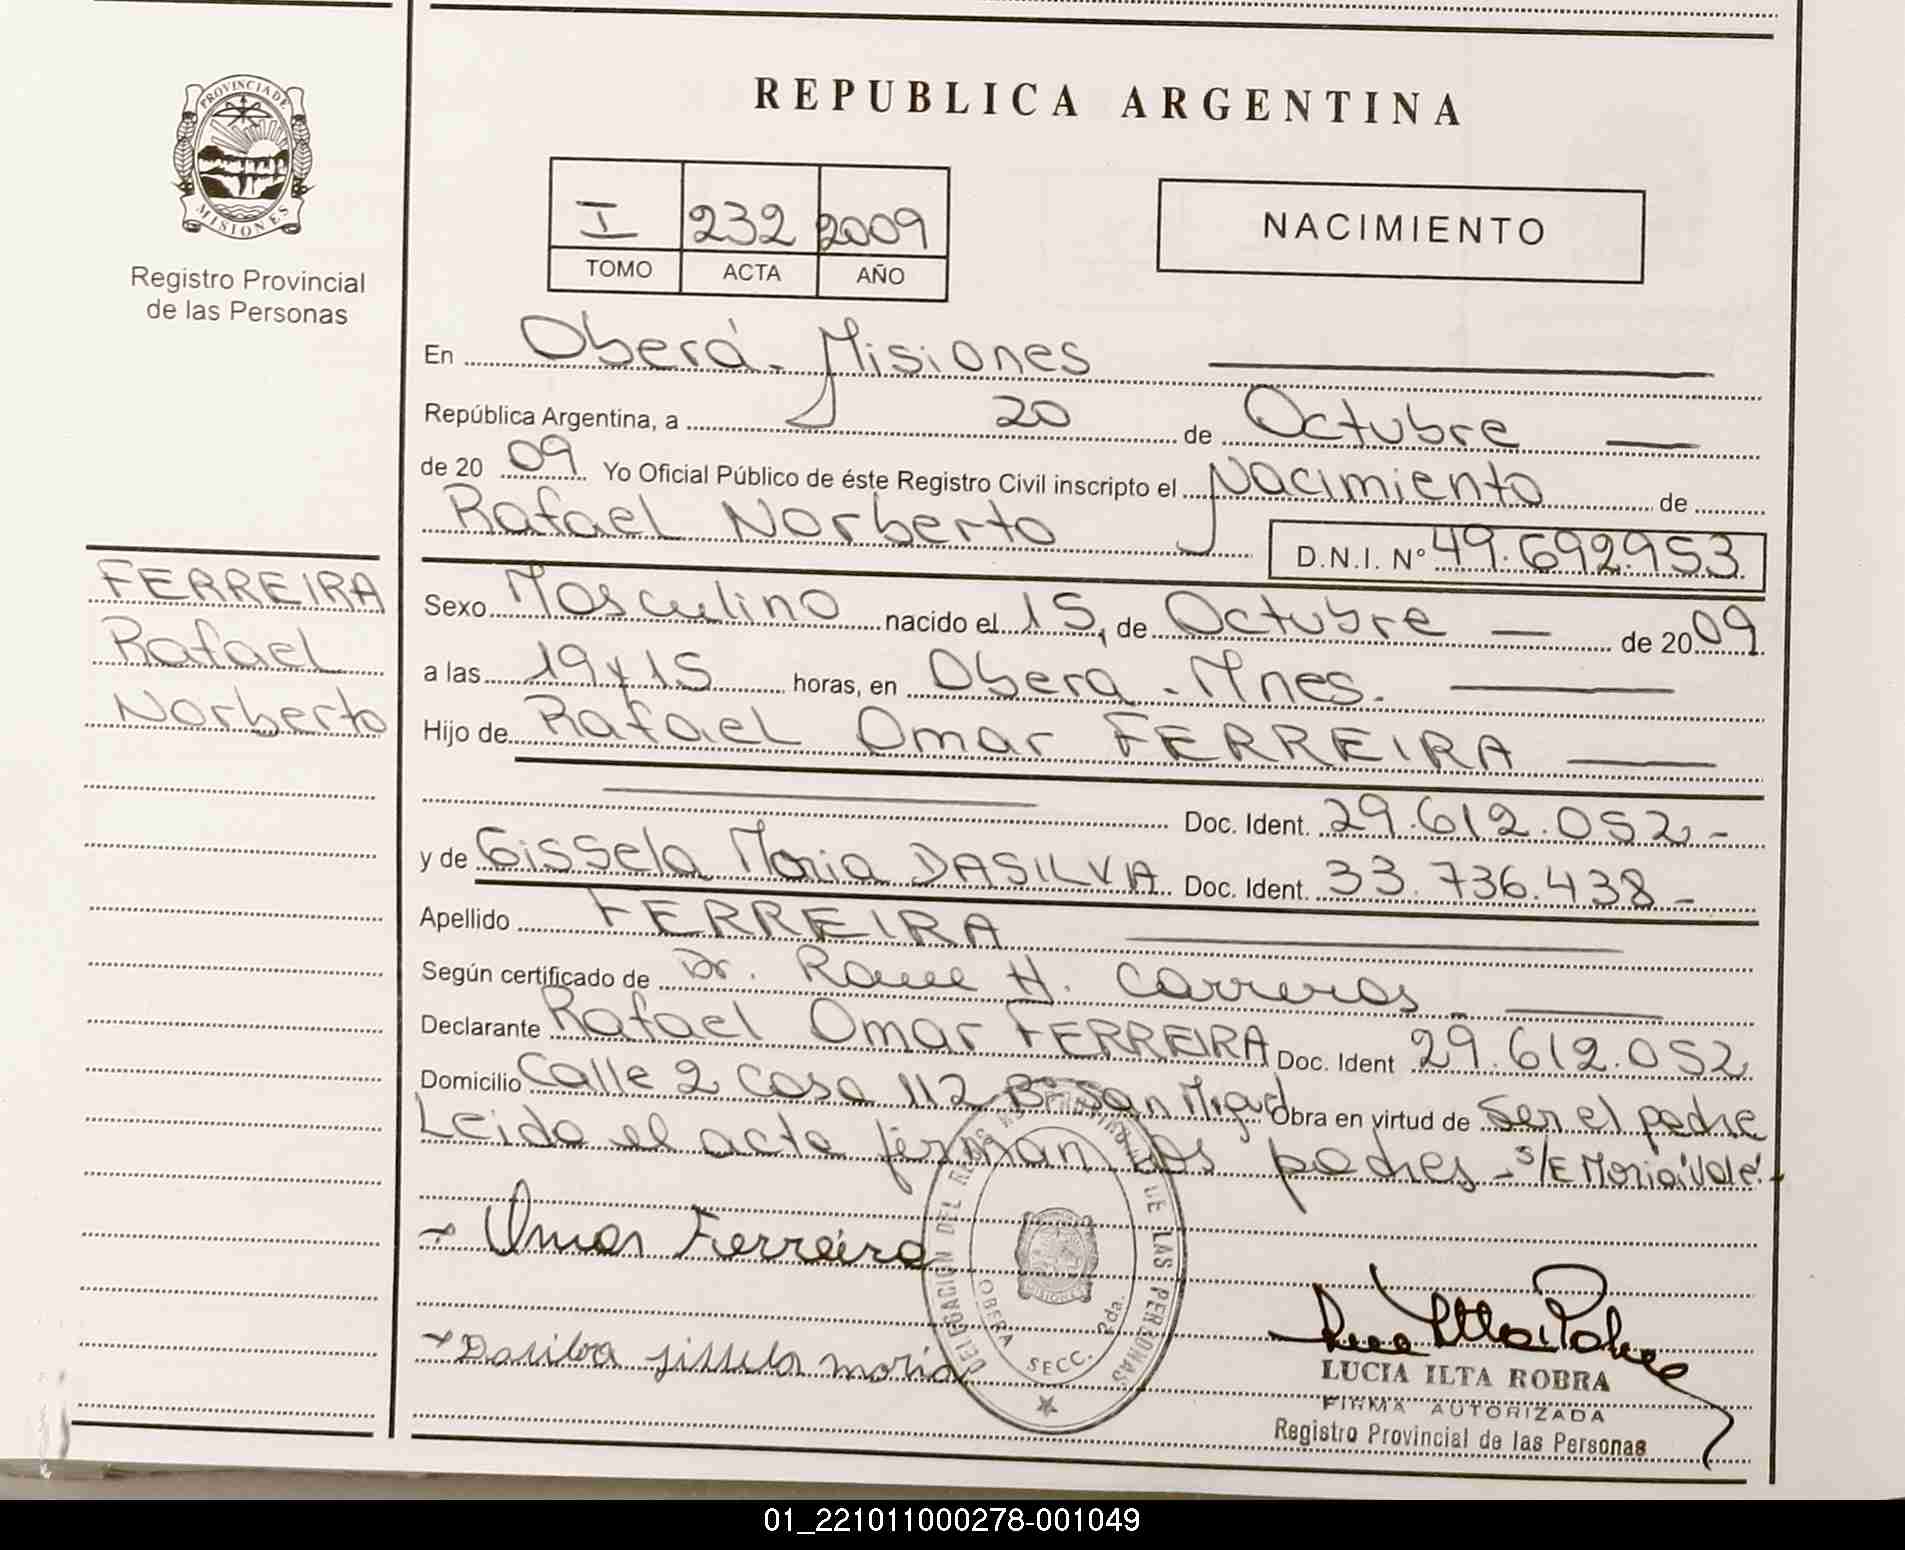 REPUBLICA ARGENTINA
PROVINCIA DE MISIONES
Registro Provincial
de las Personas
I 232 2009
TOMO ACTA AÑO
NACIMIENTO
En Oberá - Misiones
República Argentina, a 20 de Octubre
de 20 09 Yo Oficial Público de éste Registro Civil inscripto el Nacimiento de
Rafael Norberto D.N.I. Nº 49.692.953
FERREIRA
Rafael
Norberto
Sexo Masculino nacido el 15, de Octubre de 20 09
a las 19 y 15 horas, en Obera - Mnes.
Hijo de Rafael Omar FERREIRA
Doc. Ident. 29.612.052 -
y de Gissela Maria DASILVA Doc. Ident. 33.736.438 -
Apellido FERREIRA
Según certificado de Dr. H. Carreras
Declarante Rafael Omar FERREIRA Doc. Ident 29.612.052
Domicilio Calle 2 Casa 112 Bº San Miguel Obra en virtud de Ser el padre
Leida el acta firman los padres - S/E Maria: Vale! -
Omar Ferreira
Dasilva jissela maria
DELEGACION DEL REGISTRO PROVINCIAL DE LAS PERSONAS
OBERA SECC. 2da.
MISIONES
LUCIA ILTA ROBRA
FIRMA AUTORIZADA
Registro Provincial de las Personas
01_221011000278-001049